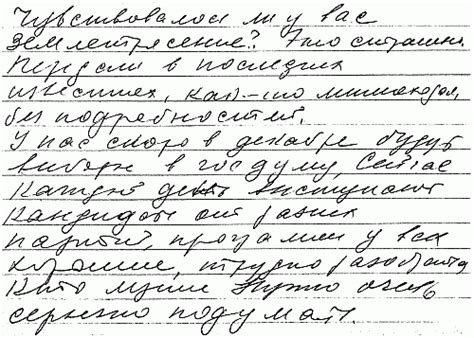 Чувствовалось ли у вас
землетрясение? Это страшно.
Передали в последних
известиях, как-то мимоходом,
без подробностей.
У нас скоро в декабре будут
выборы в госдуму, Сейчас
каждый день выступают
кандидаты от разных
партий, программы у всех
хорошие, трудно разобраться
кто лучше Нужно очень
серьезно подумать.